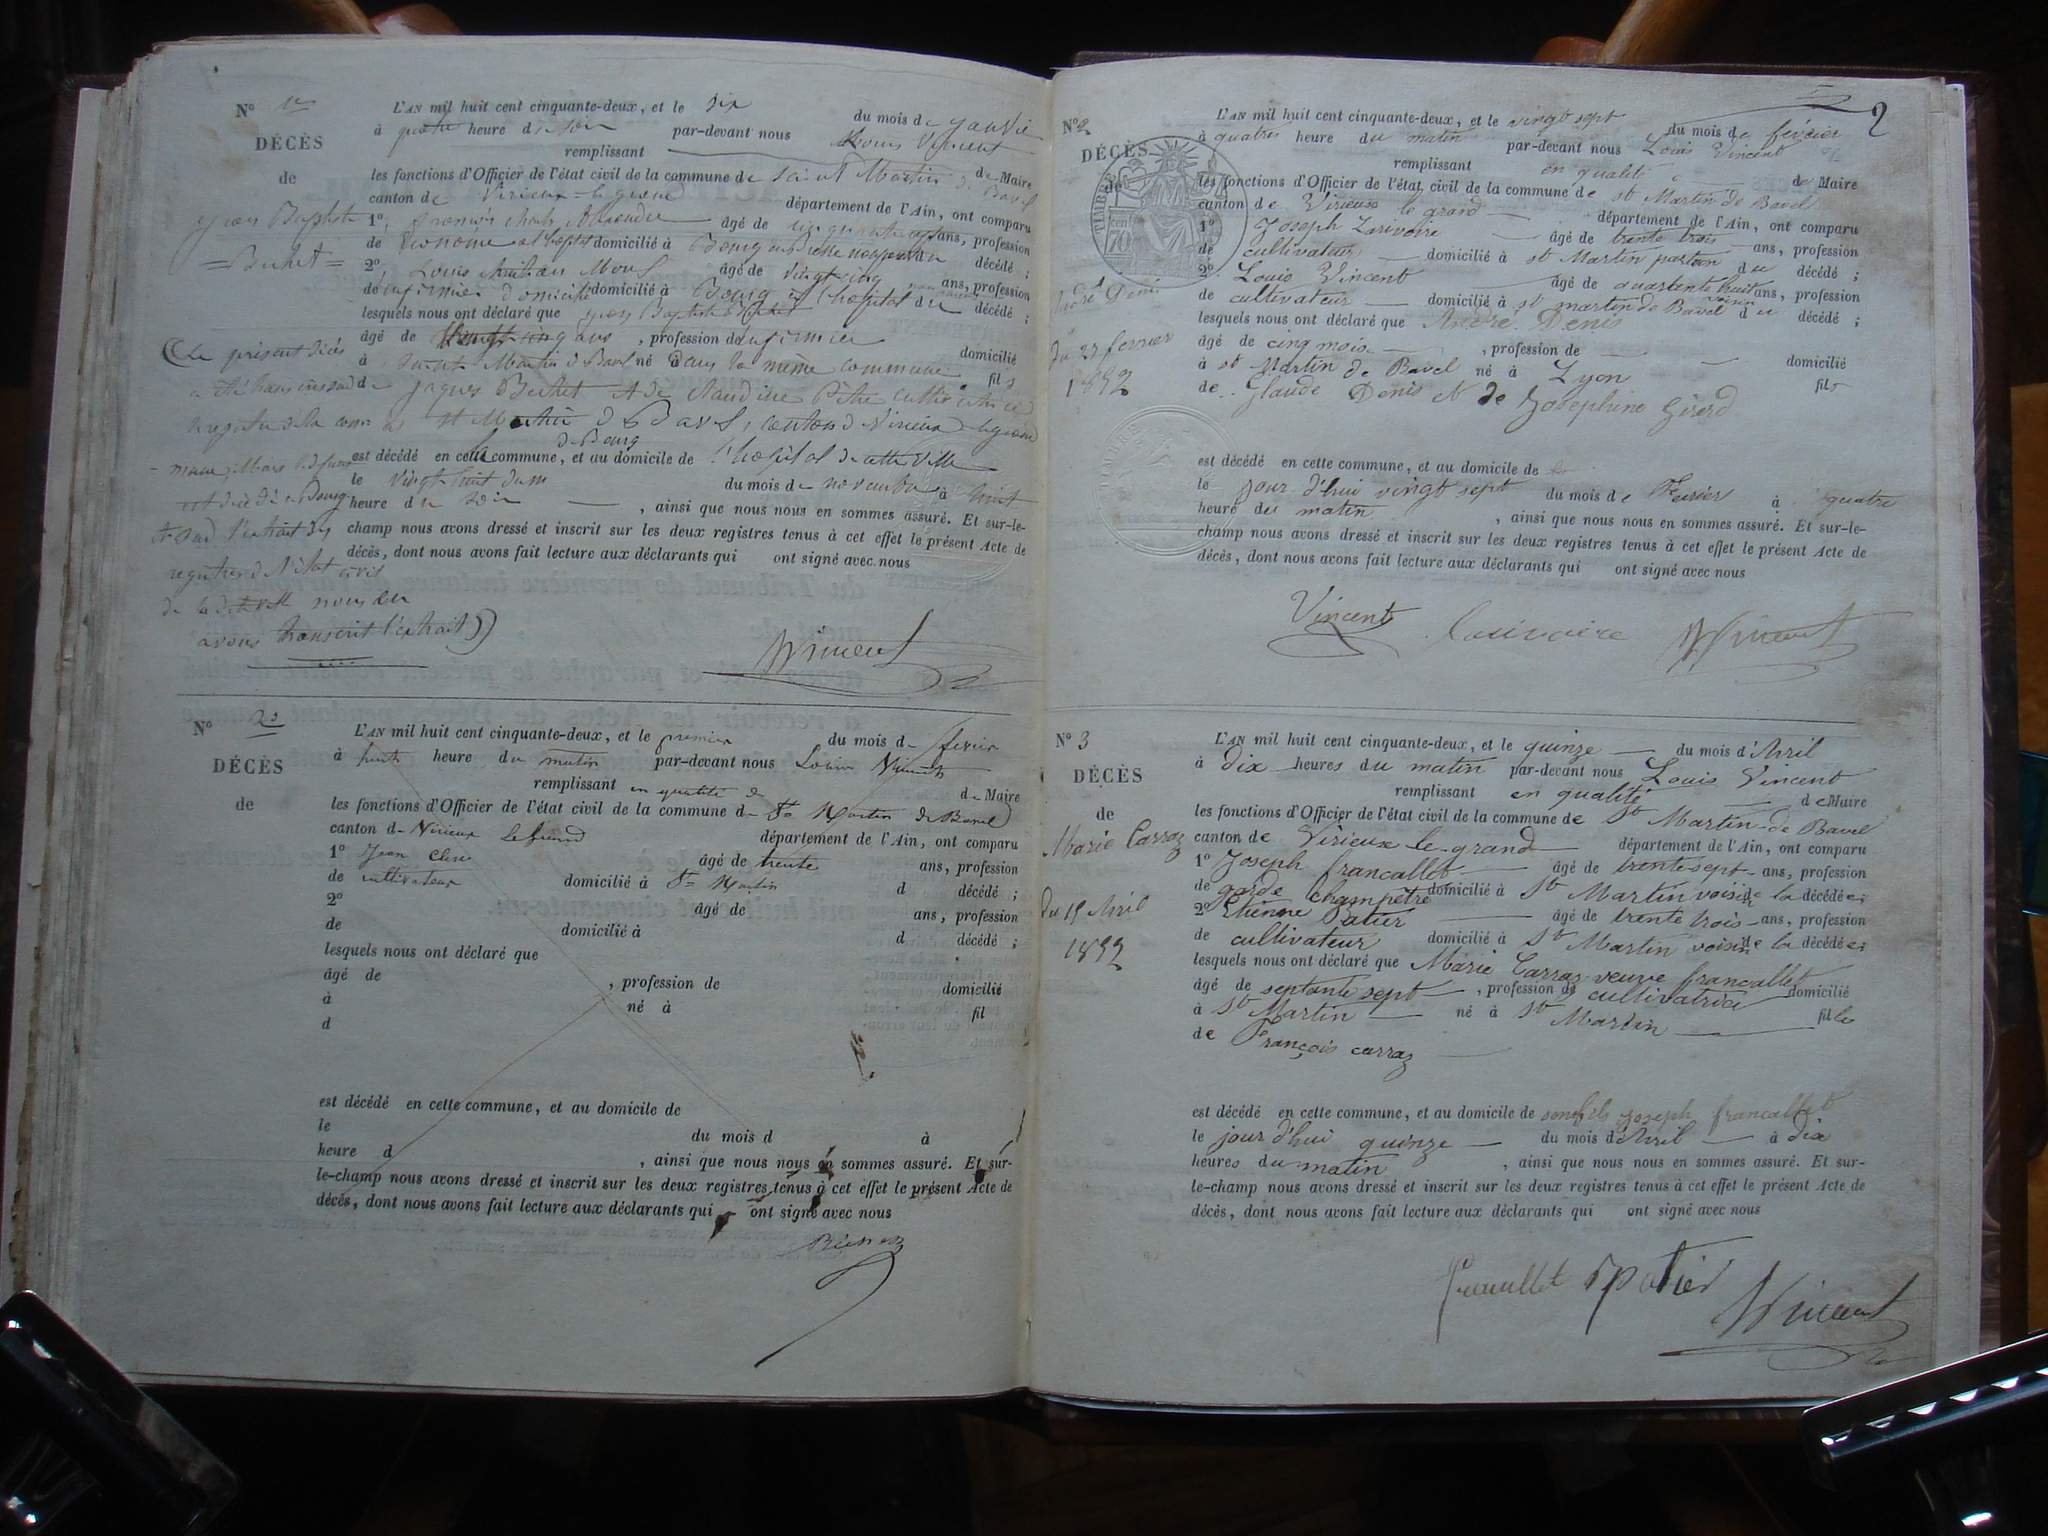 N° 1er
DÉCÈS
de
Jean Baptiste
Buchet
L'AN mil huit cent cinquante-deux, et le dix du mois de janvier
à quatre heure du soir par-devant nous Louis Vincent
remplissant de Maire
les fonctions d'Officier de l'état civil de la commune de Saint Martin de Bavel
canton de Virieux-le-grand département de l'Ain, ont comparu
1° âgé de ans, profession
de économe domicilié à Bourg décédé ;
2° Louis âgé de vingt cinq ans, profession
de infirmier domicilié domicilié à Bourg à l'hopital du décédé ;
lesquels nous ont déclaré que Jean Baptiste Buchet
âgé de vingt cinq ans , profession d'infirmier domicilié
à Saint Martin de Bavel né dans la même commune fils
de Jaques Buchet et de Claudine cultivatrice
à St Martin de Bavel, canton de Virieux le grand
est décédé en cette commune, de Bourg et au domicile de l'hopital de cette ville
le vingt huit du m du mois de novembre à huit
heure du soir , ainsi que nous nous en sommes assuré. Et sur-le-
champ nous avons dressé et inscrit sur les deux registres tenus à cet effet le présent Acte de
décès, dont nous avons fait lecture aux déclarants qui ont signé avec nous
(Le présent décès
a été transcrit sur le
registre de la com-
mune. Mais le defunt
est décédé à Bourg
registres de l'état civil
de la dite ville nous en
avons transcrit l'extrait)
Vincent
N° 2
DÉCÈS
de
L'AN mil huit cent cinquante-deux, et le premier du mois de fevrier
à huit heure du matin par-devant nous Louis Vincent
remplissant en qualité de de Maire
les fonctions d'Officier de l'état civil de la commune de St Martin de Bavel
canton de Virieux Le grand département de l'Ain, ont comparu
1° Jean âgé de trente ans, profession
de cultivateur domicilié à St Martin d décédé ;
2° âgé de ans, profession
de domicilié à d décédé ;
lesquels nous ont déclaré que
âgé de , profession de domicilié
à né à fil
d
est décédé en cette commune, et au domicile de
le du mois d à
heure d , ainsi que nous nous en sommes assuré. Et sur-
le-champ nous avons dressé et inscrit sur les deux registres tenus à cet effet le présent Acte de
décès, dont nous avons fait lecture aux déclarants qui ont signé avec nous
2
N° 2
DÉCÈS
de
TIMBRE
70
André Denis
du 27 fevrier
1852
L'AN mil huit cent cinquante-deux, et le vingt sept du mois de février
à quatres heure du matin par-devant nous Louis Vincent
remplissant en qualité de Maire
les fonctions d'Officier de l'état civil de la commune de St Martin de Bavel
canton de Virieux le grand département de l'Ain, ont comparu
1° Joseph Larivoire âgé de trente trois ans, profession
de cultivateur domicilié à St Martin du décédé ;
2° Louis Vincent âgé de quarante huit ans, profession
de cultivateur domicilié à St martin de Bavel voisin du décédé ;
lesquels nous ont déclaré que André Denis
âgé de cinq mois , profession de domicilié
à St Martin de Bavel né à Lyon fils
de Glaude Denis et de Josephine Girerd
est décédé en cette commune, et au domicile de
le jour d'hui vingt sept du mois de Fevrier à quatre
heure du matin , ainsi que nous nous en sommes assuré. Et sur-le-
champ nous avons dressé et inscrit sur les deux registres tenus à cet effet le présent Acte de
décès, dont nous avons fait lecture aux déclarants qui ont signé avec nous
Vincent Larivoire Vincent
N° 3
DÉCÈS
de
Marie Carraz
du 15 Avril
1852
L'AN mil huit cent cinquante-deux, et le quinze du mois d'Avril
à dix heures du matin par-devant nous Louis Vincent
remplissant en qualité de Maire
les fonctions d'Officier de l'état civil de la commune de St Martin-de Bavel
canton de Virieux le-grand département de l'Ain, ont comparu
1° Joseph francallet âgé de trente sept ans, profession
de garde champètre domicilié à St Martin voisin de la décédée ;
2° Etienne Patier âgé de trente trois ans, profession
de cultivateur domicilié à St Martin voisin de la décédée ;
lesquels nous ont déclaré que Marie Carraz veuve francallet
âgé de septante sept , profession de cultivatrice domicilié
à St Martin né à St Martin fille
de François carraz
est décédé en cette commune, et au domicile de son fils Joseph francallet
le jour d'hui quinze du mois d'Avril à dix
heures du matin , ainsi que nous nous en sommes assuré. Et sur-
le-champ nous avons dressé et inscrit sur les deux registres tenus à cet effet le présent Acte de
décès, dont nous avons fait lecture aux déclarants qui ont signé avec nous
francallet patier Vincent